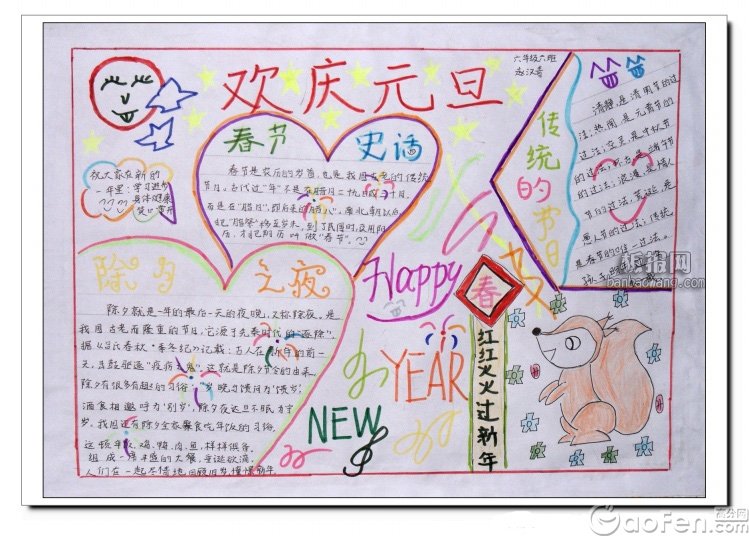 欢庆元旦
六年级六班
春节 史话
春节是农历的岁首，也是我国古老的传统
节日。古代过"年"不是在腊月二九日或三十日，
而是在"腊日"，即后来的"腊八"。南北朝以后
把"腊祭"移至岁末，到了民国时，改用阳
历，才把阴历叫做"春节"。
祝大家在新的
一年里：学习进步
身体健康
笑口常开
除夕 之夜
除夕就是一年的最后一天的夜晚，又称除夜，是
我国古老而隆重的节日，它源于先秦时代的"逐除"，
据《吕氏春秋·季冬纪》记载：古人在新年的前一
天，击鼓驱逐"疫疠之鬼"，这就是除夕节令的由来。
除夕有很多有趣的习俗：岁晚相馈问为"馈岁"；
酒食相邀呼为"别岁"，除夕夜达旦不眠为守
岁，我国还有除夕全家聚食吃年饭的习俗，
这顿年饭，鸡、鸭、肉、鱼，样样俱备，
组成一席丰盛的大餐，垂涎欲滴，
人们在一起尽情地回顾旧岁，憧憬新年。
Happy
NEW
YEAR
春
红红火火过新年
传统的节日
清静，是清明节的过
法；热闹，是元宵节的
过法；空灵，是中秋节
的过法；
端午节
的过法；浪漫，是情人
节的过法；
是
愚人节的过法；传统
是春节的唯一过法。
板报网
banbaowang.com
高分网
Gaofen.com